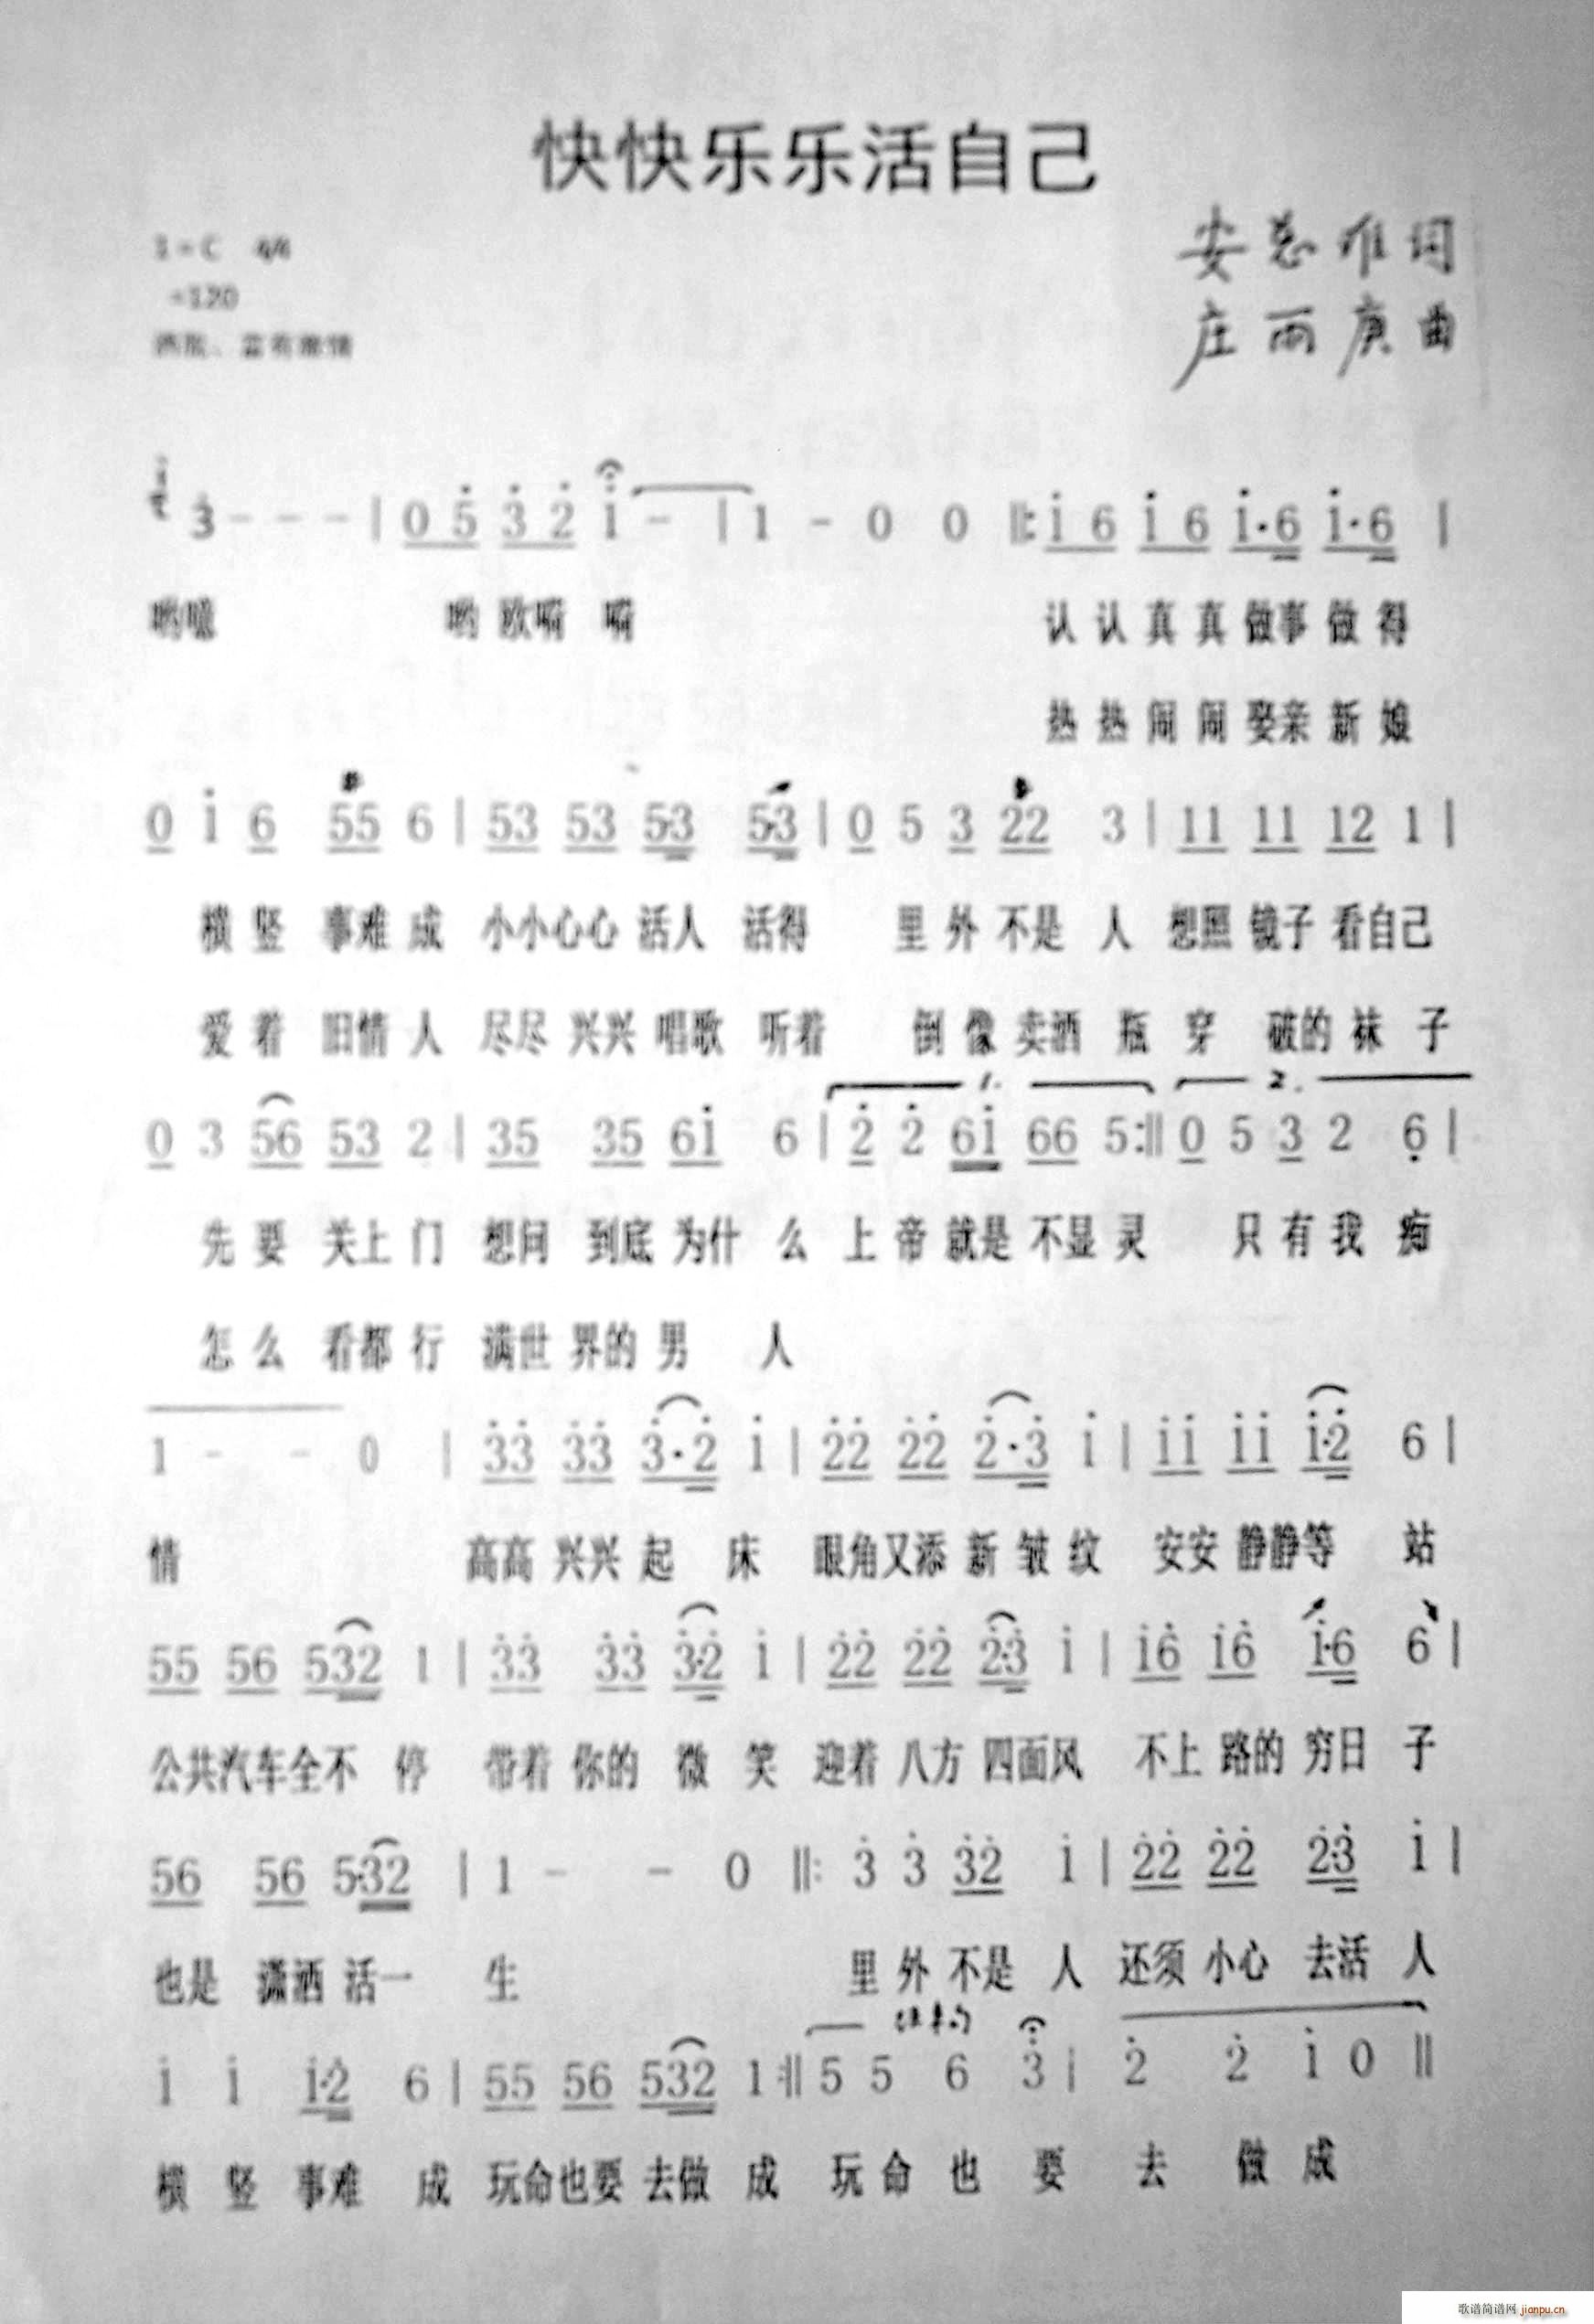 快快乐乐活自己
1=C 4/4
=120
安 词
庄雨庚曲
3 - - - | 0 5 3 2 1 - | 1 - 0 0 ‖: 1 6 1 6 1·6 1·6 |
哟 哟欧嗬 嗬 认认真真做事做得
热热闹闹娶亲新娘
0 1 6 55 6 | 53 53 5·3 5·3 | 0 5 3 22 3 | 11 11 12 1 |
横竖 事难成 小小心心活人 活得 里外不是人 想照镜子看自己
爱着 旧情人 尽尽兴兴唱歌 听着 倒像卖酒瓶 穿 破的袜子
1. 2.
0 3 56 53 2 | 35 35 61 6 | 2 2 61 66 5 :‖ 0 5 3 2 6 |
先要 关上门 想问 到底为什么 上帝就是不显灵 只有我痴
怎么 看都行 满世界的男 人
1 - - 0 | 33 33 3·2 1 | 22 22 2·3 1 | 11 11 1·2 6 |
情 高高兴兴起 床 眼角又添新皱纹 安安静静等 站
55 56 532 1 | 33 33 3·2 1 | 22 22 2·3 1 | 16 16 1·6 6 |
公共汽车全不 停 带着你的 微 笑 迎着八方四面风 不上路的穷日 子
56 56 5·32 | 1 - - 0 ‖: 3 3 32 1 | 22 22 2·3 1 |
也是 潇洒活一 生 里外不是人 还须小心 去活人
结束句
1 1 1·2 6 | 55 56 532 1 :‖ 5 5 6 3 | 2 2 1 0 ‖
横 竖 事难 成 玩命也要去做 成 玩命 也 要 去 做 成
歌谱简谱网 jianpu.cn